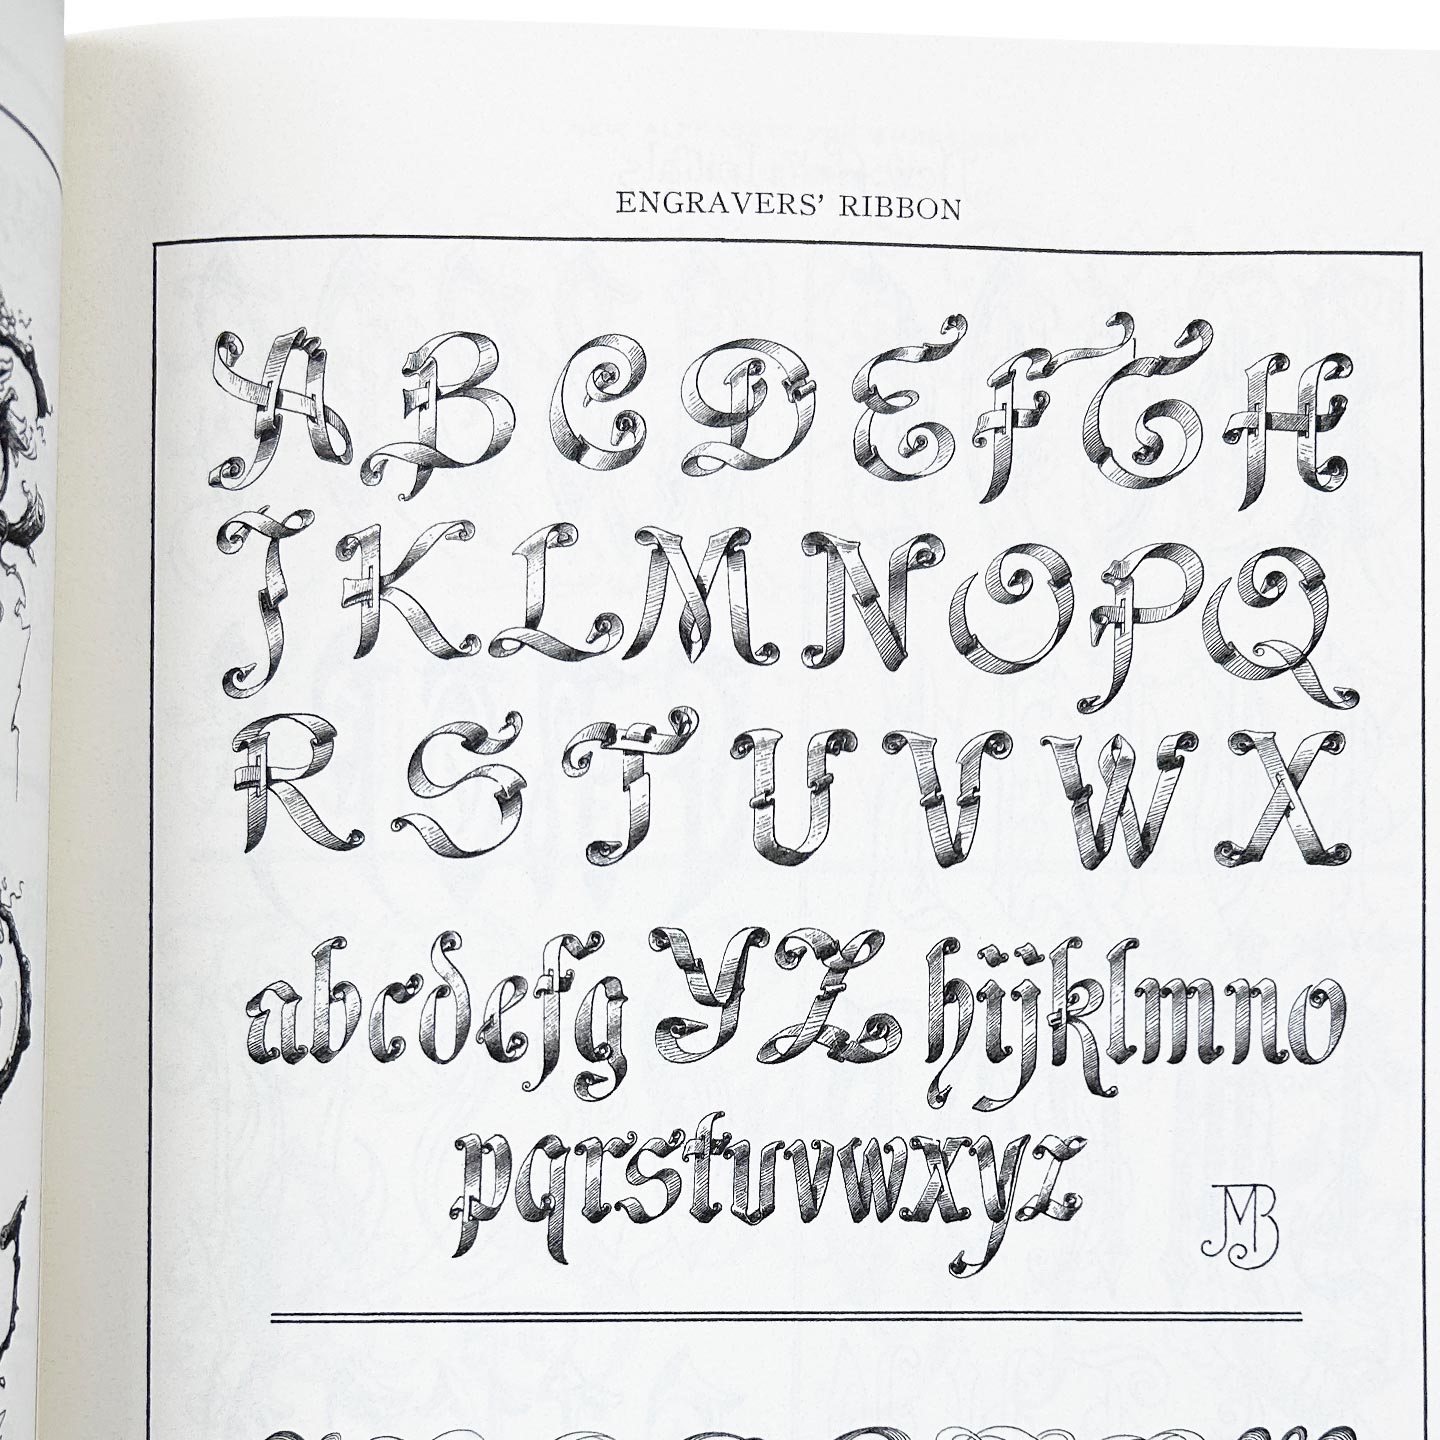 ENGRAVERS' RIBBON
A B C D E F G H
J K L M N O P Q
R S T U V W X
abcdefg Y Z hijklmno
pqrstuvwxyz
MB